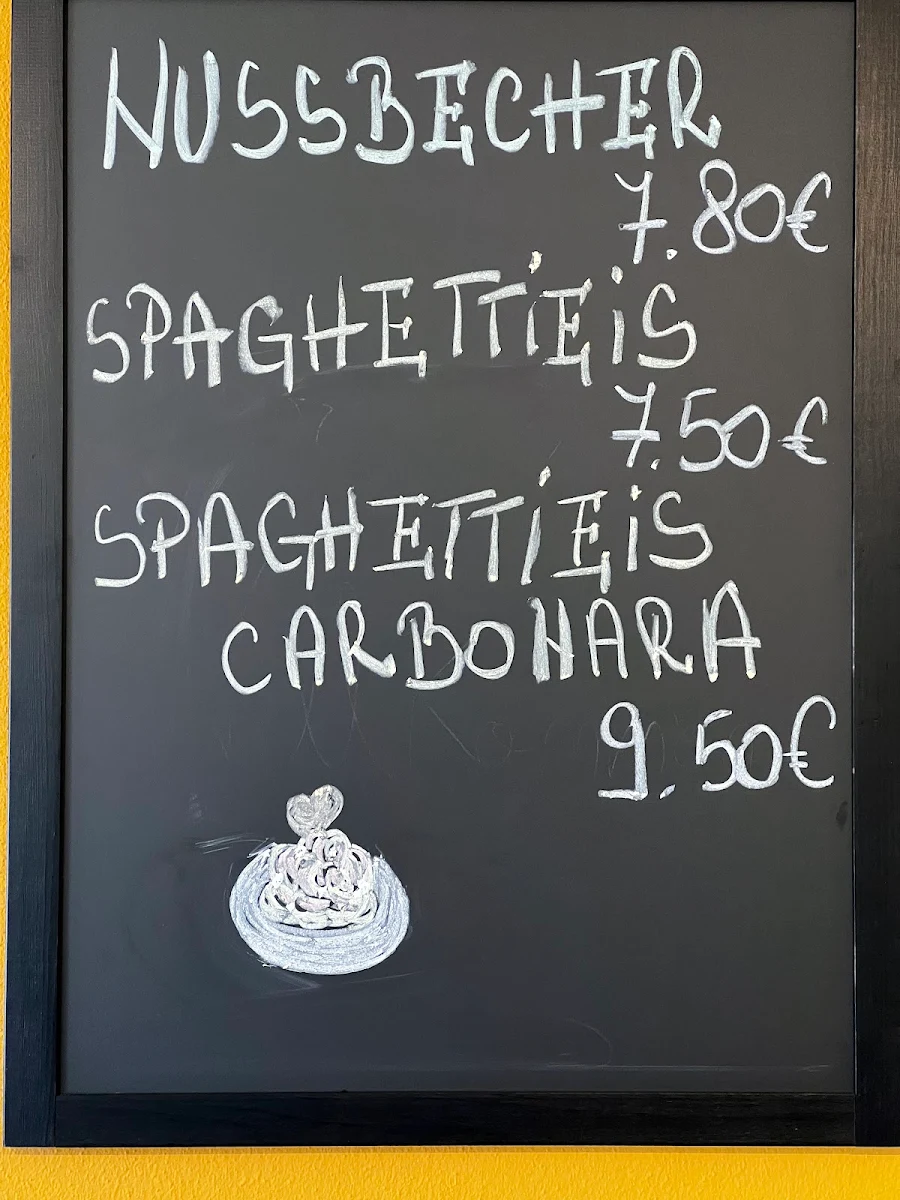 NUSSBECHER
7.80€
SPAGHETTiEiS
7.50€
SPAGHETTiEiS
CARBONARA
9.50€